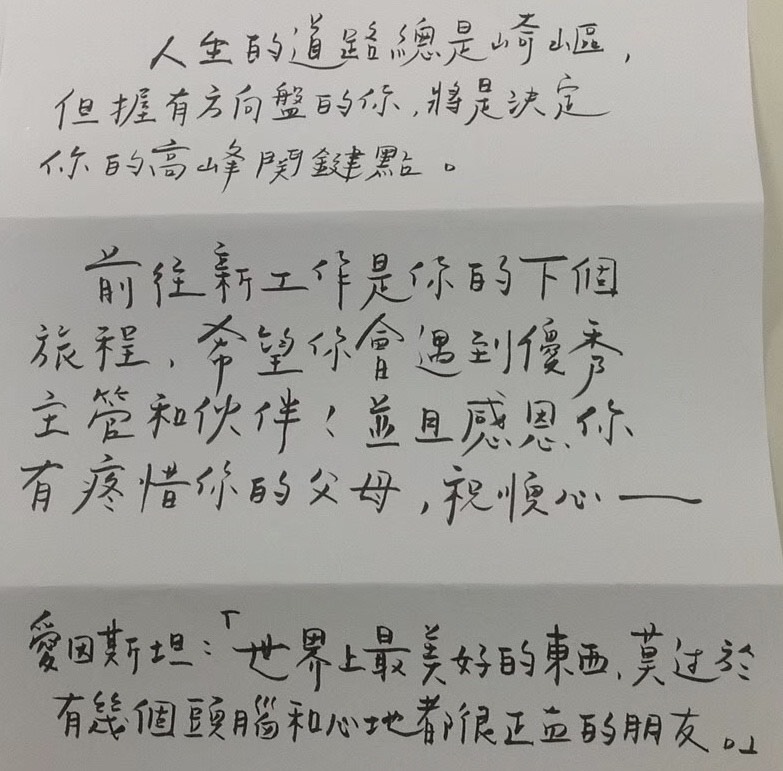 人生的道路總是崎嶇，
但握有方向盤的你，將是決定
你的高峰関鍵點。
前往新工作是你的下個
旅程，希望你會遇到優秀
主管和伙伴！並且感恩你
有疼惜你的父母，祝順心—
愛因斯坦：「世界上最美好的東西，莫过於
有幾個頭腦和心地都很正直的朋友。」